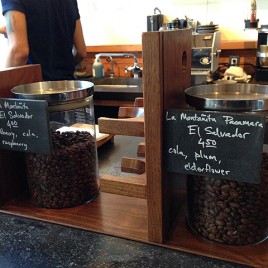 La Montañita
El Salvador
4.50
cola,
raspberry
La Montañita Pacamara
El Salvador
4.50
cola, plum,
elderflower